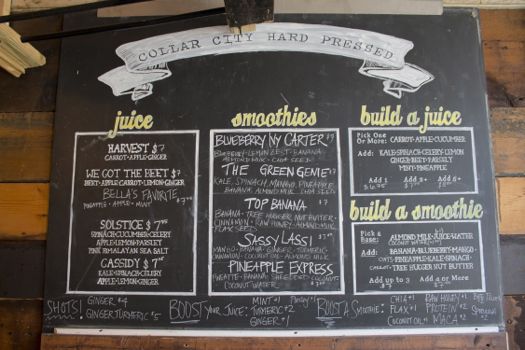 COLLAR CITY HARD PRESSED
juice
HARVEST $7
CARROT·APPLE·GINGER
WE GOT THE BEET $7
BEET·APPLE·CARROT·LEMON·GINGER
BELLA'S FAVORITE
PINEAPPLE · APPLE · MINT
SOLSTICE $7
SPINACH·CUCUMBER·CELERY
APPLE·LEMON·PARSLEY
PINK HIMALAYAN SEA SALT
CASSIDY $7
KALE·SPINACH·CELERY
APPLE·LEMON·GINGER
smoothies
BLUEBERRY NY CARTER
BLUEBERRY·LEMON ZEST·BANANA
ALMOND MILK · CHIA SEEDS
THE GREEN GENIE
KALE, SPINACH, MANGO, PINEAPPLE
BANANA, ALMOND MILK, CHIA SEED
TOP BANANA
BANANA · TREE HUGGER NUT BUTTER
CINNAMON · RAW HONEY · ALMOND MILK
FLAX SEED
SASSY LASSI
MANGO · BANANA · GINGER · TURMERIC
CINNAMON · COCONUT OIL · ALMOND MILK
PINEAPPLE EXPRESS
COCONUT WATER
build a juice
PICK ONE OR MORE: CARROT·APPLE·CUCUMBER
ADD: KALE·SPINACH·CELERY·LEMON
GINGER·BEET·PARSLEY
MINT·PINEAPPLE
ADD 1 ADD 2+
build a smoothie
PICK A BASE: ALMOND MILK·JUICE·WATER
COCONUT WATER
ADD: BANANA·BLUEBERRY·MANGO·
OATS·PINEAPPLE·KALE·SPINACH·
TREE HUGGER NUT BUTTER
ADD UP TO 3 ADD 4 OR MORE
SHOTS! GINGER $4
GINGER TURMERIC $5
BOOST YOUR JUICE: MINT $1
TURMERIC $2
GINGER $1
BOOST A SMOOTHIE: CHIA $1 RAW HONEY $1
FLAX $1 PROTEIN $2
COCONUT OIL $1 MACA $2